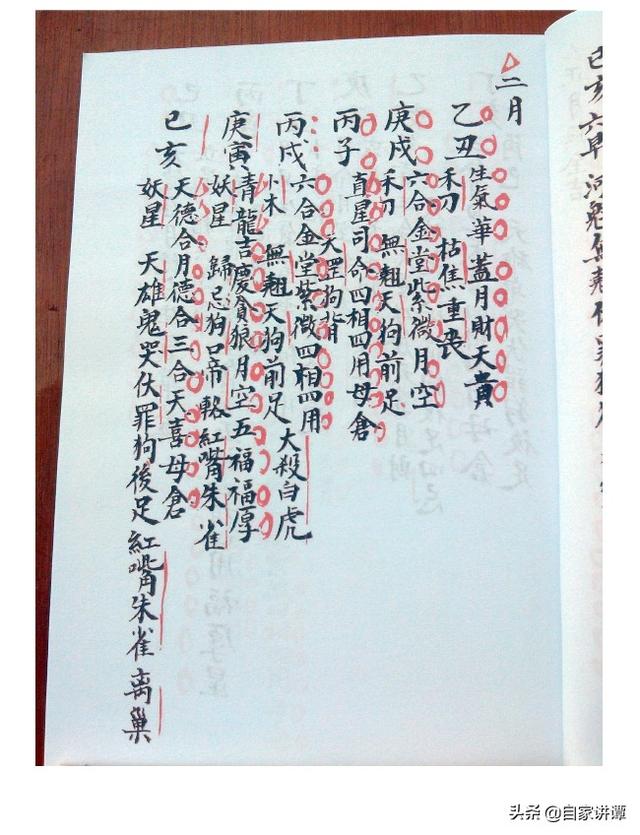 二月
乙丑
生氣華蓋月財天貴
禾刃 枯焦重喪
庚戌
六合金堂紫微月空
禾刃 無翹天狗前足
丙子
直星司命四相四用母倉
天罡狗背
丙戌
六合金堂紫微四相四用
小木 無翹天狗前足大殺白虎
庚寅
青龍吉慶貪狼月空五福福厚
妖星 歸忌狗口帝輅紅嘴朱雀
己亥
天德合月德合三合天喜母倉
妖星 天雄鬼哭伏罪狗後足紅嘴朱雀离巢
己亥六阜河魁
头条 @自家讲谭